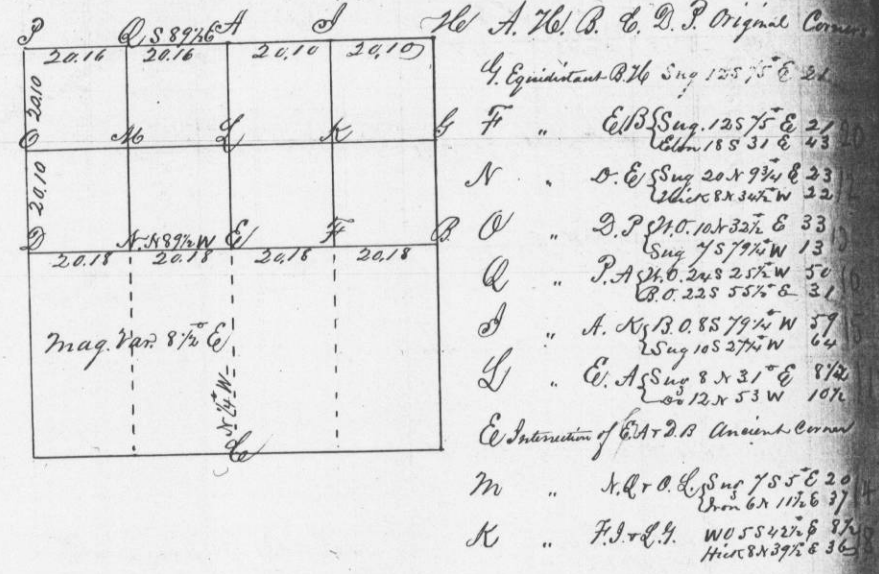 P Q S 89½ E A I H
20.16 20.16 20.10 20.10
20.10
O M L K G
20.10
D N N 89½ W E F B
20.18 20.18 20.18 20.18
Mag. Var. 8½° E
N ¼° W
C
A. H. B. E. D. P. Original Corners
G. Equidistant B.H Sug 12 S 75° E 21
F " E B Sug. 12 S 75° E 21
Elm 18 S 31 E 43
N " D. E Sug 20 N 9¾ E 23
Hick 8 N 34½ W 22
O " D. P W.O. 10 N 32½ E 33
Sug 7 S 79¼ W 13
Q " P. A W.O. 24 S 25½ W 50
B.O. 22 S 55½ E 31
I " A. K B.O. 8 S 79¼ W 59
Sug 10 S 27¼ W 64
L " E. A Sug 8 N 31° E 8½
Do 12 N 53 W 10½
E Intersection of E A & D. B Ancient Corner
M " N. Q & O. L. Sug 7 S 5° E 20
Iron 6 N 11½ E 37
K " F. I. & L. G. W O 5 S 42½ E 8½
Hick 8 N 39½ E 36